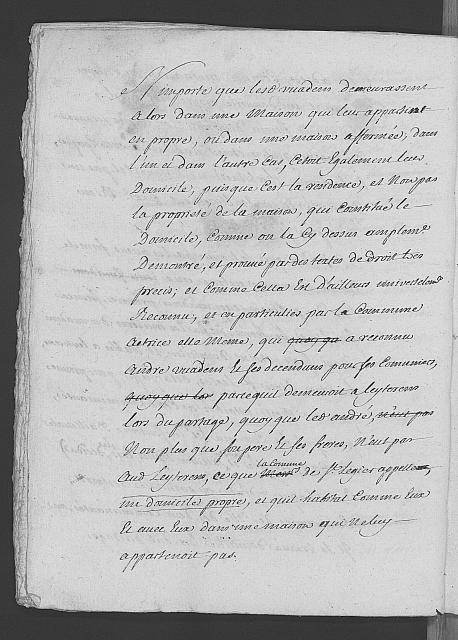 N'importe que lesd vuadens demeurassent
alors dans une Maison qui leur appartint
en propre, ou dans une maison affermée, dans
l'un et dans l'autre cas, C'etoit Egalement leur
Domicile, puisque C'est la residence, et Non pas
la proprieté de la maison, qui Constitué le
Domicile, Comme on la Cy dessus amplemt
Demontré, et prouvé par des textes de droit tres
precis; et Comme Cella Est D'ailleurs universelemt
Reconnu, et en particulier par la Commune
actrice elle Meme, qui quoy qu a reconnu
andré vuadens et ses descendans pour ses Comuniers,
quoyque lor parcequil demeuroit a leytorens
lors du partage, quoy que led andré, n'eut pas
Non plus que son pere et ses freres, N'eut pas
aud Leytorens, ce que la Comune de St Legier appelle,
un domicile propre, et quil habitat Comme Eux
Et avec Eux dans une maison qui Ne luy
appartenoit pas.